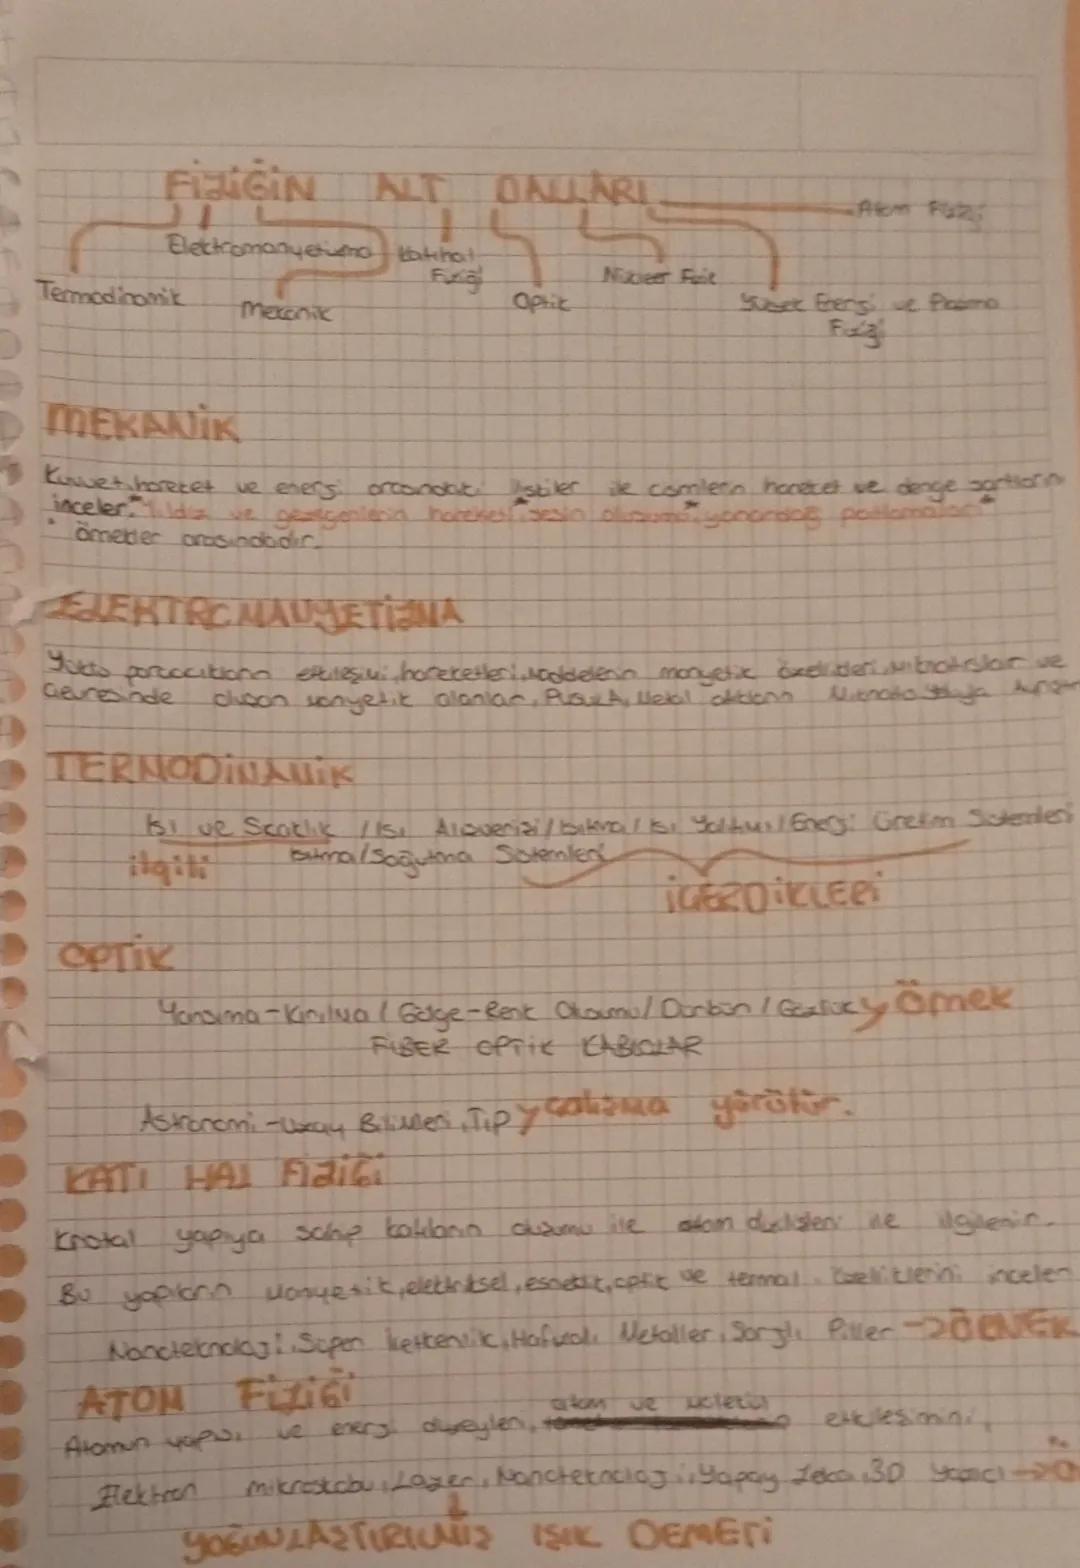 FİZİĞİN ALT DALLARI
Atom Fiziği
Elektromanyetizma
Katıhal
Fiziği
Nükleer Fizik
Termodinamik
Mekanik
Optik
Yüksek Enerji ve Plazma
Fiziği
MEKANİK
Kuvvet, hareket ve enerji arasındaki ilişkiler ile cisimlerin hareket ve denge şartlarını
inceler. "Yıldız ve gezegenlerin hareketi, sesin oluşumu, yanardağ patlamaları"
örnekler arasındadır.
ELEKTROMANYETİZMA
Yüklü parçacıkların etkileşimi, hareketleri, maddelerin manyetik özellikleri, mıknatıslar ve
çevresinde oluşan manyetik alanlar, Metal
TERMODİNAMİK
Isı ve Sıcaklık / Isı Alışverişi / Isınma / Isı Yalıtımı / Enerji Üretim Sistemleri
ilgili
Isıtma/Soğutma Sistemleri
İÇERDİKLERİ
OPTİK
Yansıma-Kırılma / Gölge-Renk Oluşumu / Dürbün / Gözlük y Örnek
FİBER OPTİK KABLOLAR
Astronomi-Uzay Bilimleri, Tıp y çalışma yürütür.
KATI HAL FİZİĞİ
Kristal yapıya sahip katıların oluşumu ile atom dizilişleri ile ilgilenir.
Bu yapıların manyetik, elektriksel, esneklik, optik ve termal özelliklerini inceler.
Nanoteknoloji, Süper iletkenlik, Hafızalı Metaller, Şarjlı Piller -> ÖRNEK
ATOM FİZİĞİ
atom ve molekül
Atomun yapısı ve enerji düzeyleri, etkileşimini,
Elektron mikroskobu, Lazer, Nanoteknoloji, Yapay Zeka, 3D Yazıcı ->
YOĞUNLAŞTIRILMIŞ IŞIK DEMETİ